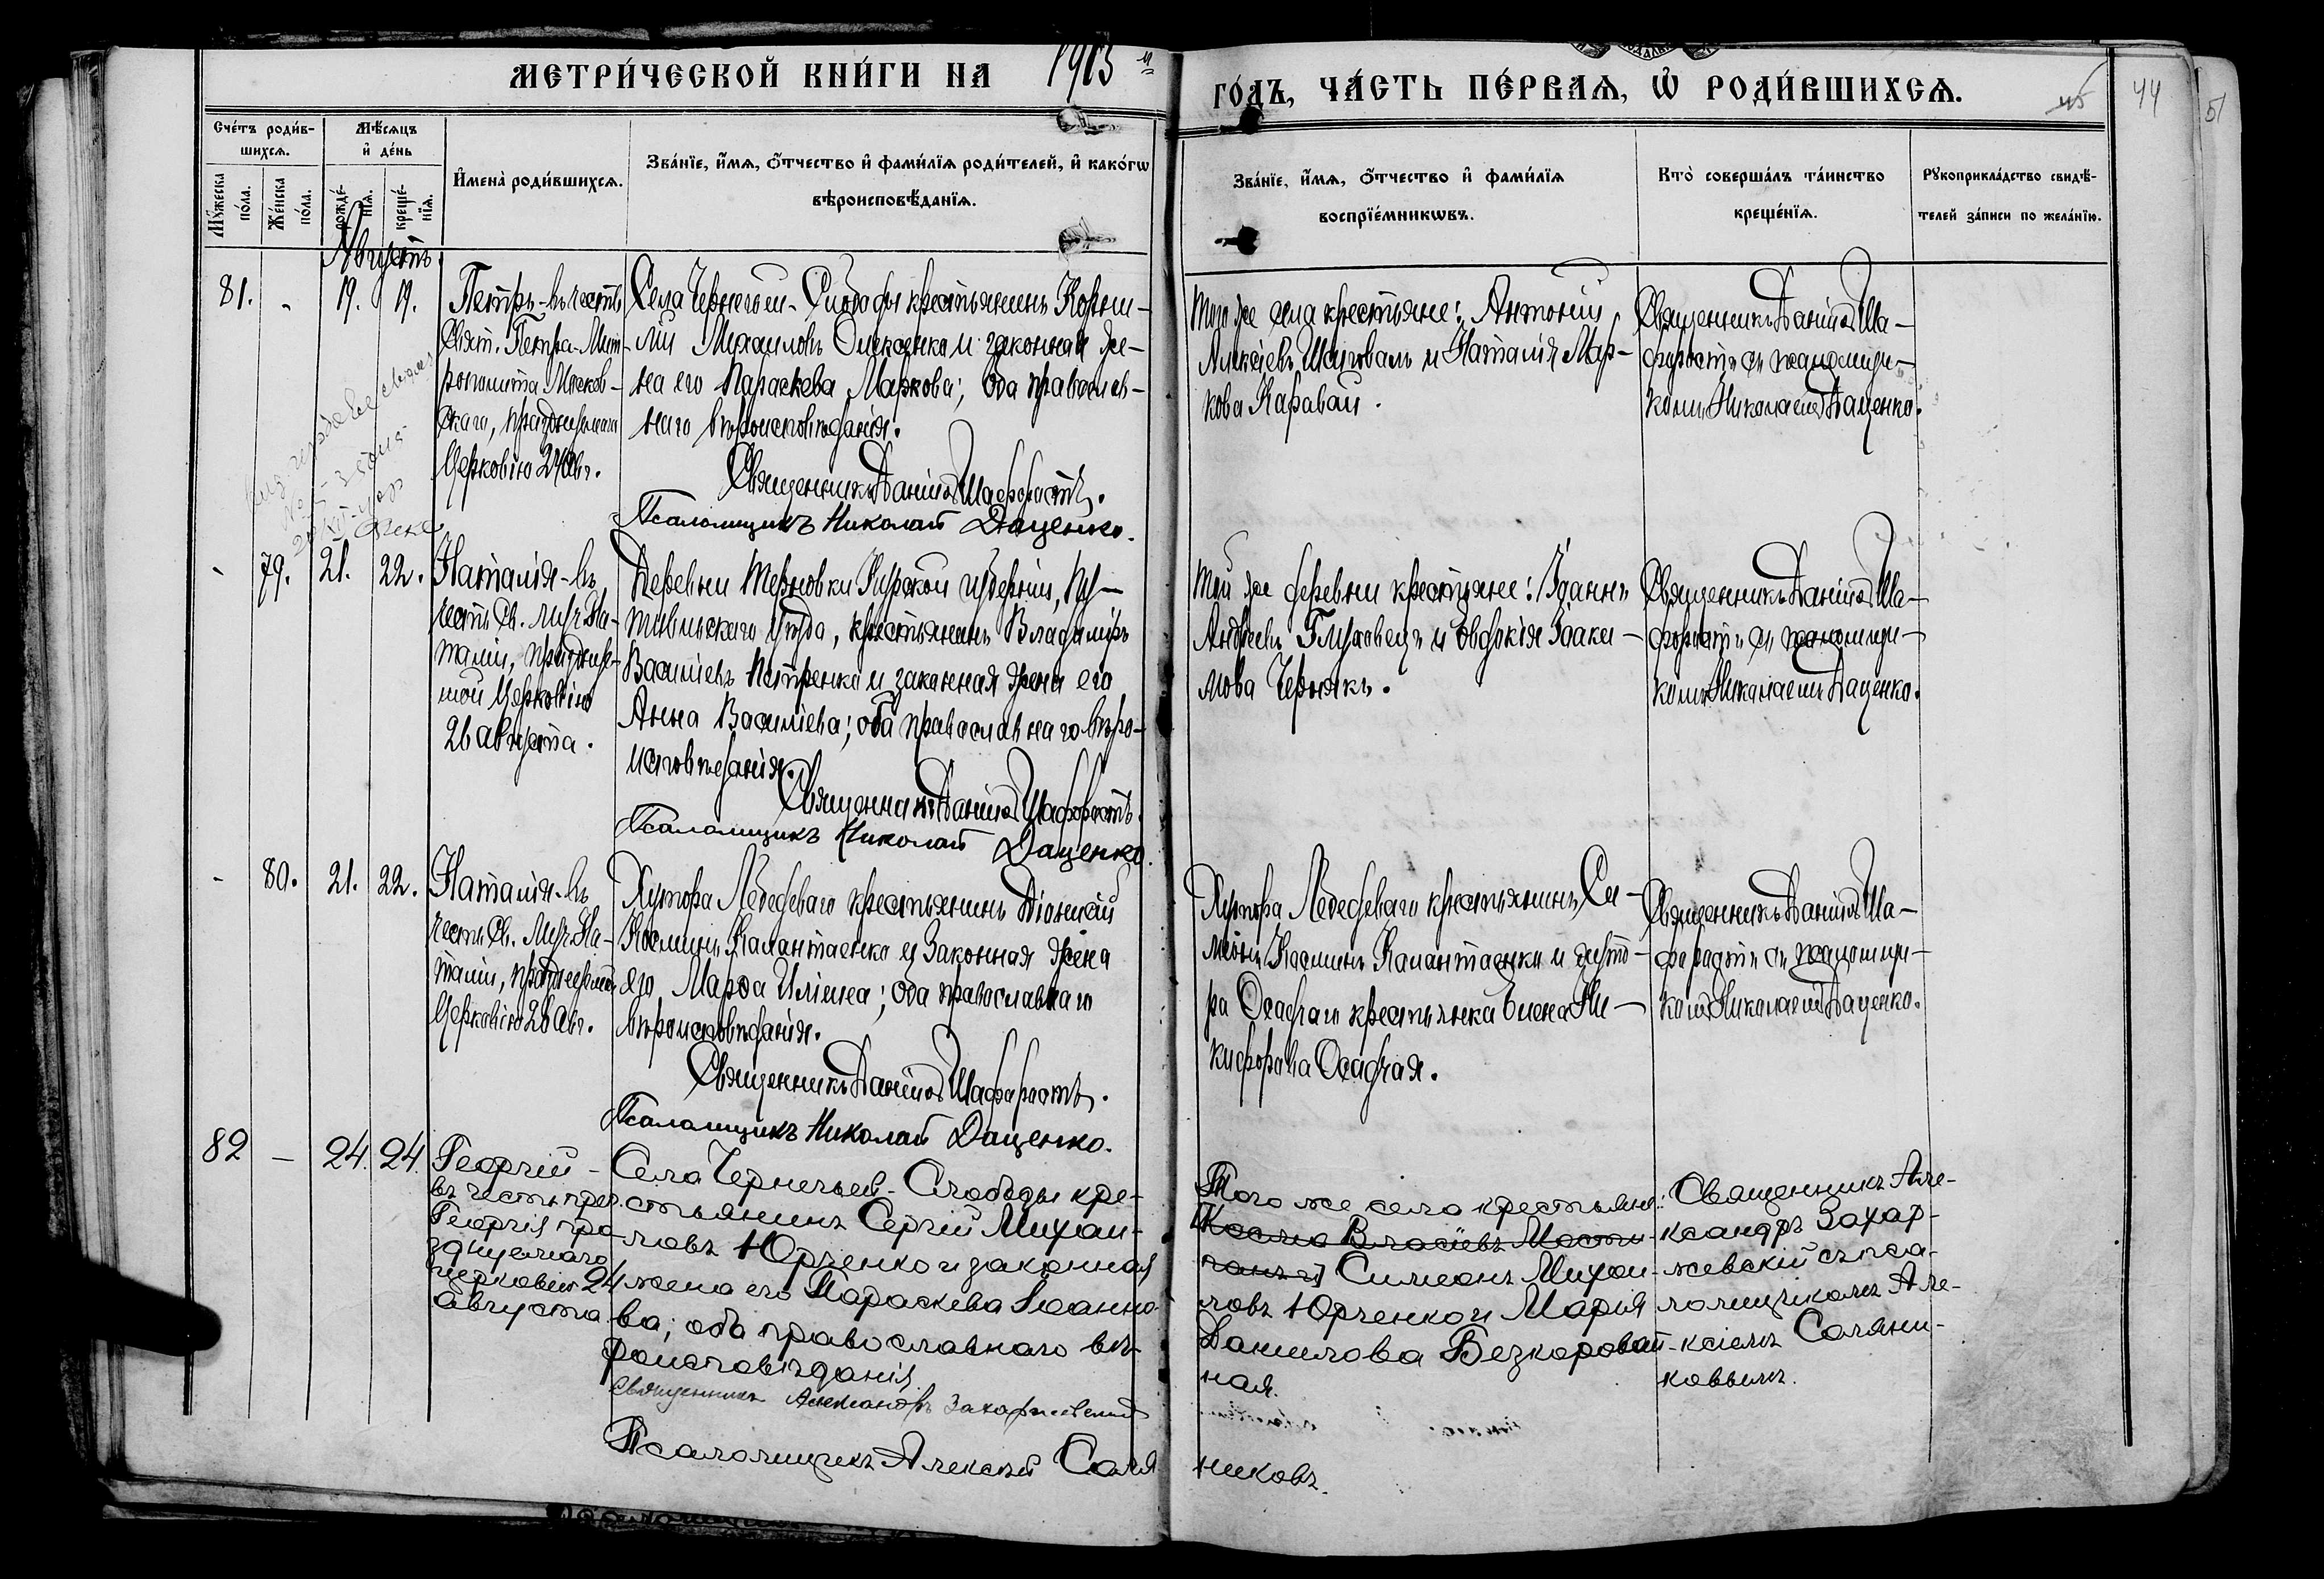 МЕТРИ́ЧЕСКОЙ КНИ́ГИ НА 1913 й
ГО́ДЪ, ЧА́СТЬ ПЕ́РВАЯ, Ѡ҆ РОДИ́ВШИХСЯ.
45
44
51
Сче́тъ роди́в-
шихся.
Мѣ́сяцъ
и҆ де́нь
Мꙋ́жеска
по́ла.
Же́нска
по́ла.
рожде́-
нїя.
креще́-
нїя.
И҆мена̀ роди́вшихся.
Зва́нїе, и҆́мя, ѻ҆́тчество и҆ фами́лїя роди́телей, и҆ како́гѡ
вѣроисповѣ́данїя.
Зва́нїе, и҆́мя, ѻ҆́тчество и҆ фами́лїя
воспрїе́мникѡвъ.
Кто̀ соверша́лъ та́инство
креще́нїя.
Рꙋкоприкла́дство свидѣ́-
телей за́писи по жела́нїю.
Августъ.
81. - 19. 19.
Петръ-въ честь
Свят. Петра-Мит-
рополита Москов-
скаго, празднуемаго
Церковію 24 Авг.
Села Чернечьей-Слободы крестьянинъ Корни-
лій Михаиловъ Олексенко и законная же-
на его Параскева Маркова; оба православ-
наго вѣроисповѣданія.
Священникъ Даніилъ Шафоростъ.
Псаломщикъ Николай Даценко.
Того же села крестьяне: Антоній
Алексіевъ Шаповалъ и Наталія Мар-
кова Каравай.
Священникъ Даніилъ Ша-
форостъ съ псаломщи-
комъ Николаемъ Даценко.
- 79. 21. 22.
Наталія-въ
честь Св. Муч. На-
таліи, празднуе-
мой Церковію
26 августа.
Деревни Терновки Курской губерніи, Пу-
тивльскаго уѣзда, крестьянинъ Владиміръ
Василіевъ Петренко и законная жена его
Анна Василіева; оба православнаго вѣро-
исповѣданія.
Священникъ Даніилъ Шафоростъ.
Псаломщикъ Николай Даценко.
Той же деревни крестьяне: Іоаннъ
Андреевъ Глуховецъ и Евдокія Іоаки-
мова Чернякъ.
Священникъ Даніилъ Ша-
форостъ съ псаломщи-
комъ Николаемъ Даценко.
- 80. 21. 22.
Наталія-въ
честь Св. Муч. На-
таліи, празднуемой
Церковію 26 Авг.
Хутора Лебедеваго крестьянинъ Діонисій
Косминъ Калантаенко и законная жена
его Марѳа Илінеа; оба православнаго
вѣроисповѣданія.
Священникъ Даніилъ Шафоростъ.
Псаломщикъ Николай Даценко.
Хутора Лебедеваго крестьянинъ Си-
меонъ Косминъ Калантаенко и хуто-
ра Осадчаго крестьянка Елена Ни-
кифорова Осадчая.
Священникъ Даніилъ Ша-
форостъ съ псаломщи-
комъ Николаемъ Даценко.
82 — 24. 24.
Георгій -
въ честь прет
Георгія пра-
зднуемаго
церковію 24
августа
Села Чернечьей-Слободы кре-
стьянинъ Сергій Михаи-
ловъ Юрченко и законная
жена его Параскева Іоанно-
ва; оба православнаго вѣ-
роисповѣданія.
Священникъ Александръ Захаржевскій
Псаломщикъ Алексѣй Соля
никовъ.
Того же села крестьяне:
Косма Власіевъ
Симеонъ Михаи-
ловъ Юрченко и Марія
Даниилова Безкоровай-
ная.
Священникъ Але-
ксандръ Захар-
жевскій съ пса-
ломщикомъ Але-
ксіемъ Соляни-
ковымъ.